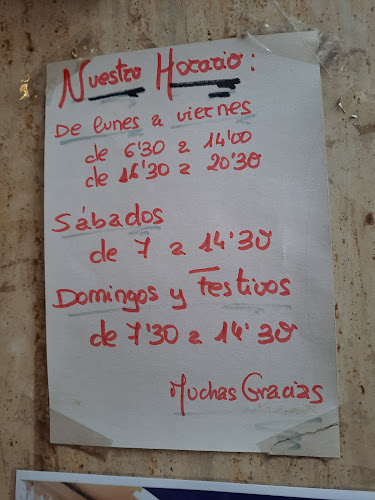 Nuestro Horario:
De lunes a viernes
de 6'30 a 14'00
de 16'30 a 20'30
Sábados
de 7 a 14'30
Domingos y Festivos
de 7'30 a 14'30
Muchas Gracias